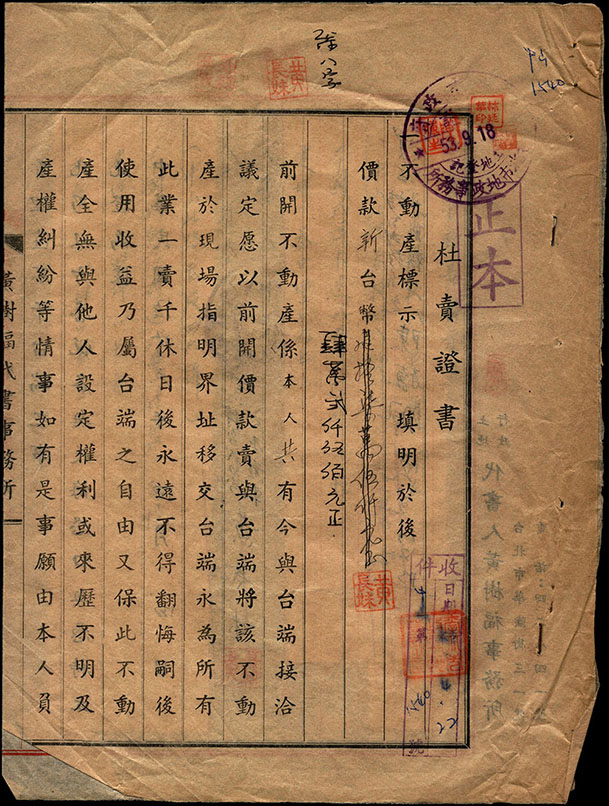 1540
53.9.18
正本
杜賣證書
不動產標示　填明於後
價款新台幣
肆萬弍仟伍佰元正
前開不動產係本人共有今與台端接洽
議定愿以前開價款賣與台端將該不動
產於現場指明界址移交台端永為所有
此業一賣千休日後永遠不得翻悔嗣後
使用收益乃屬台端之自由又保此不動
產全無與他人設定權利或來歷不明及
產權糾紛等情事如有是事願由本人員
黃樹福代書事務所
收件
日期
第
1540
號
22
黃長妹
黃長妹
代書人黃樹福事務所